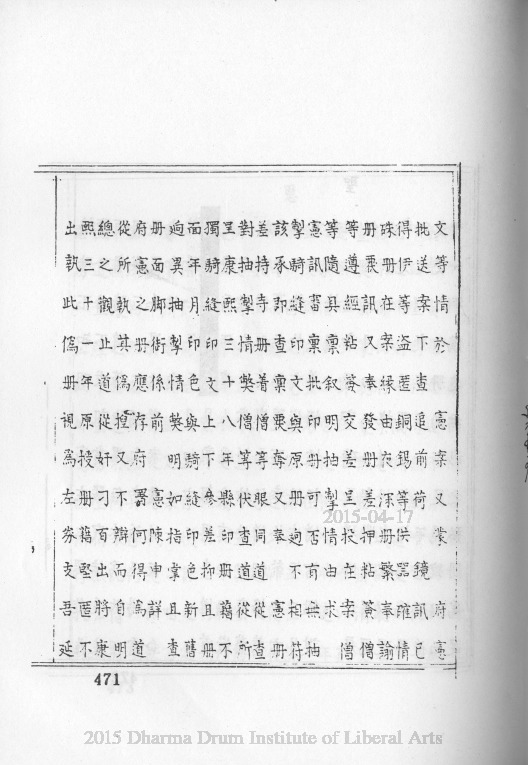 文等情於憲案又蒙府憲
批送案下查追前荷鏡訊已
得伊等盜匿銅錫等供器確情
硃册在案緣由衣深册繁奉諭
册褁訊又奉發册差押粘簽僧
等遵經粘簽交差呈投在案僧
等隨具稟叙明抽掣情由求
憲訊畜稟批印册可否有無抽
掣騎縫印文與原册逈不相符
該承即查稟褁奪又奉憲册
盖持寺册普僧等眼同道從查
對抽掣情獘僧等伏查道從所
呈康熙三十八年縣印册藉不
獨騎縫印文上下參差抑且册
面年月印色與騎縫印色新舊
逈異抽掣情獘明如指掌且查
册面脚衙係前憲陳申詳
府憲之册應存府署何得爲道
從所執其僞捏又不辯而自明
總之觀止道從奸刁百出將康
熙三十一年原授册藉堅匿不
出執此僞册視爲左券支吾延
471
2015-04-17
2015 Dharma Drum Institute of Liberal Arts